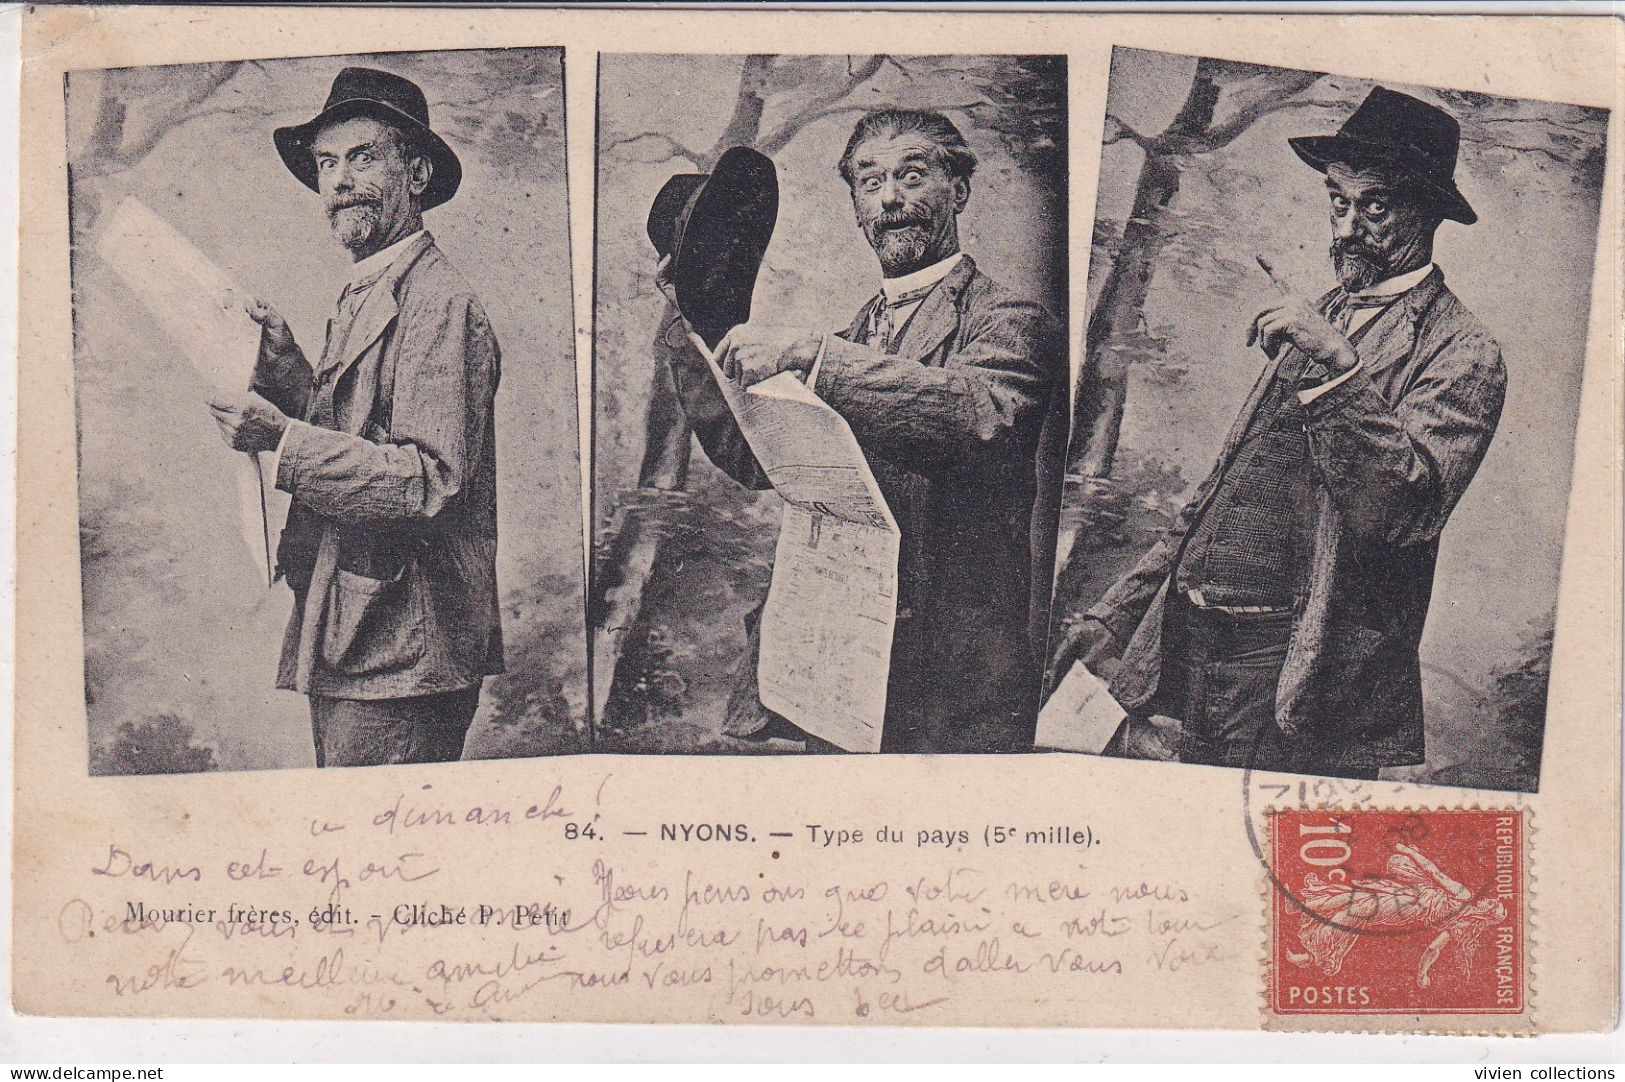 dimanche!
84. — NYONS. — Type du pays (5e mille).
Dans cet espoir
Nous pensons que votre mère nous
Mourier frères, édit. - Cliché P. Petit
Recevez vous et votre
refusera pas ce plaisir a notre tour
notre meilleure amitié
nous vous promettons d'aller vous voir
sous peu
10c
REPUBLIQUE FRANÇAISE
POSTES
vivien collections